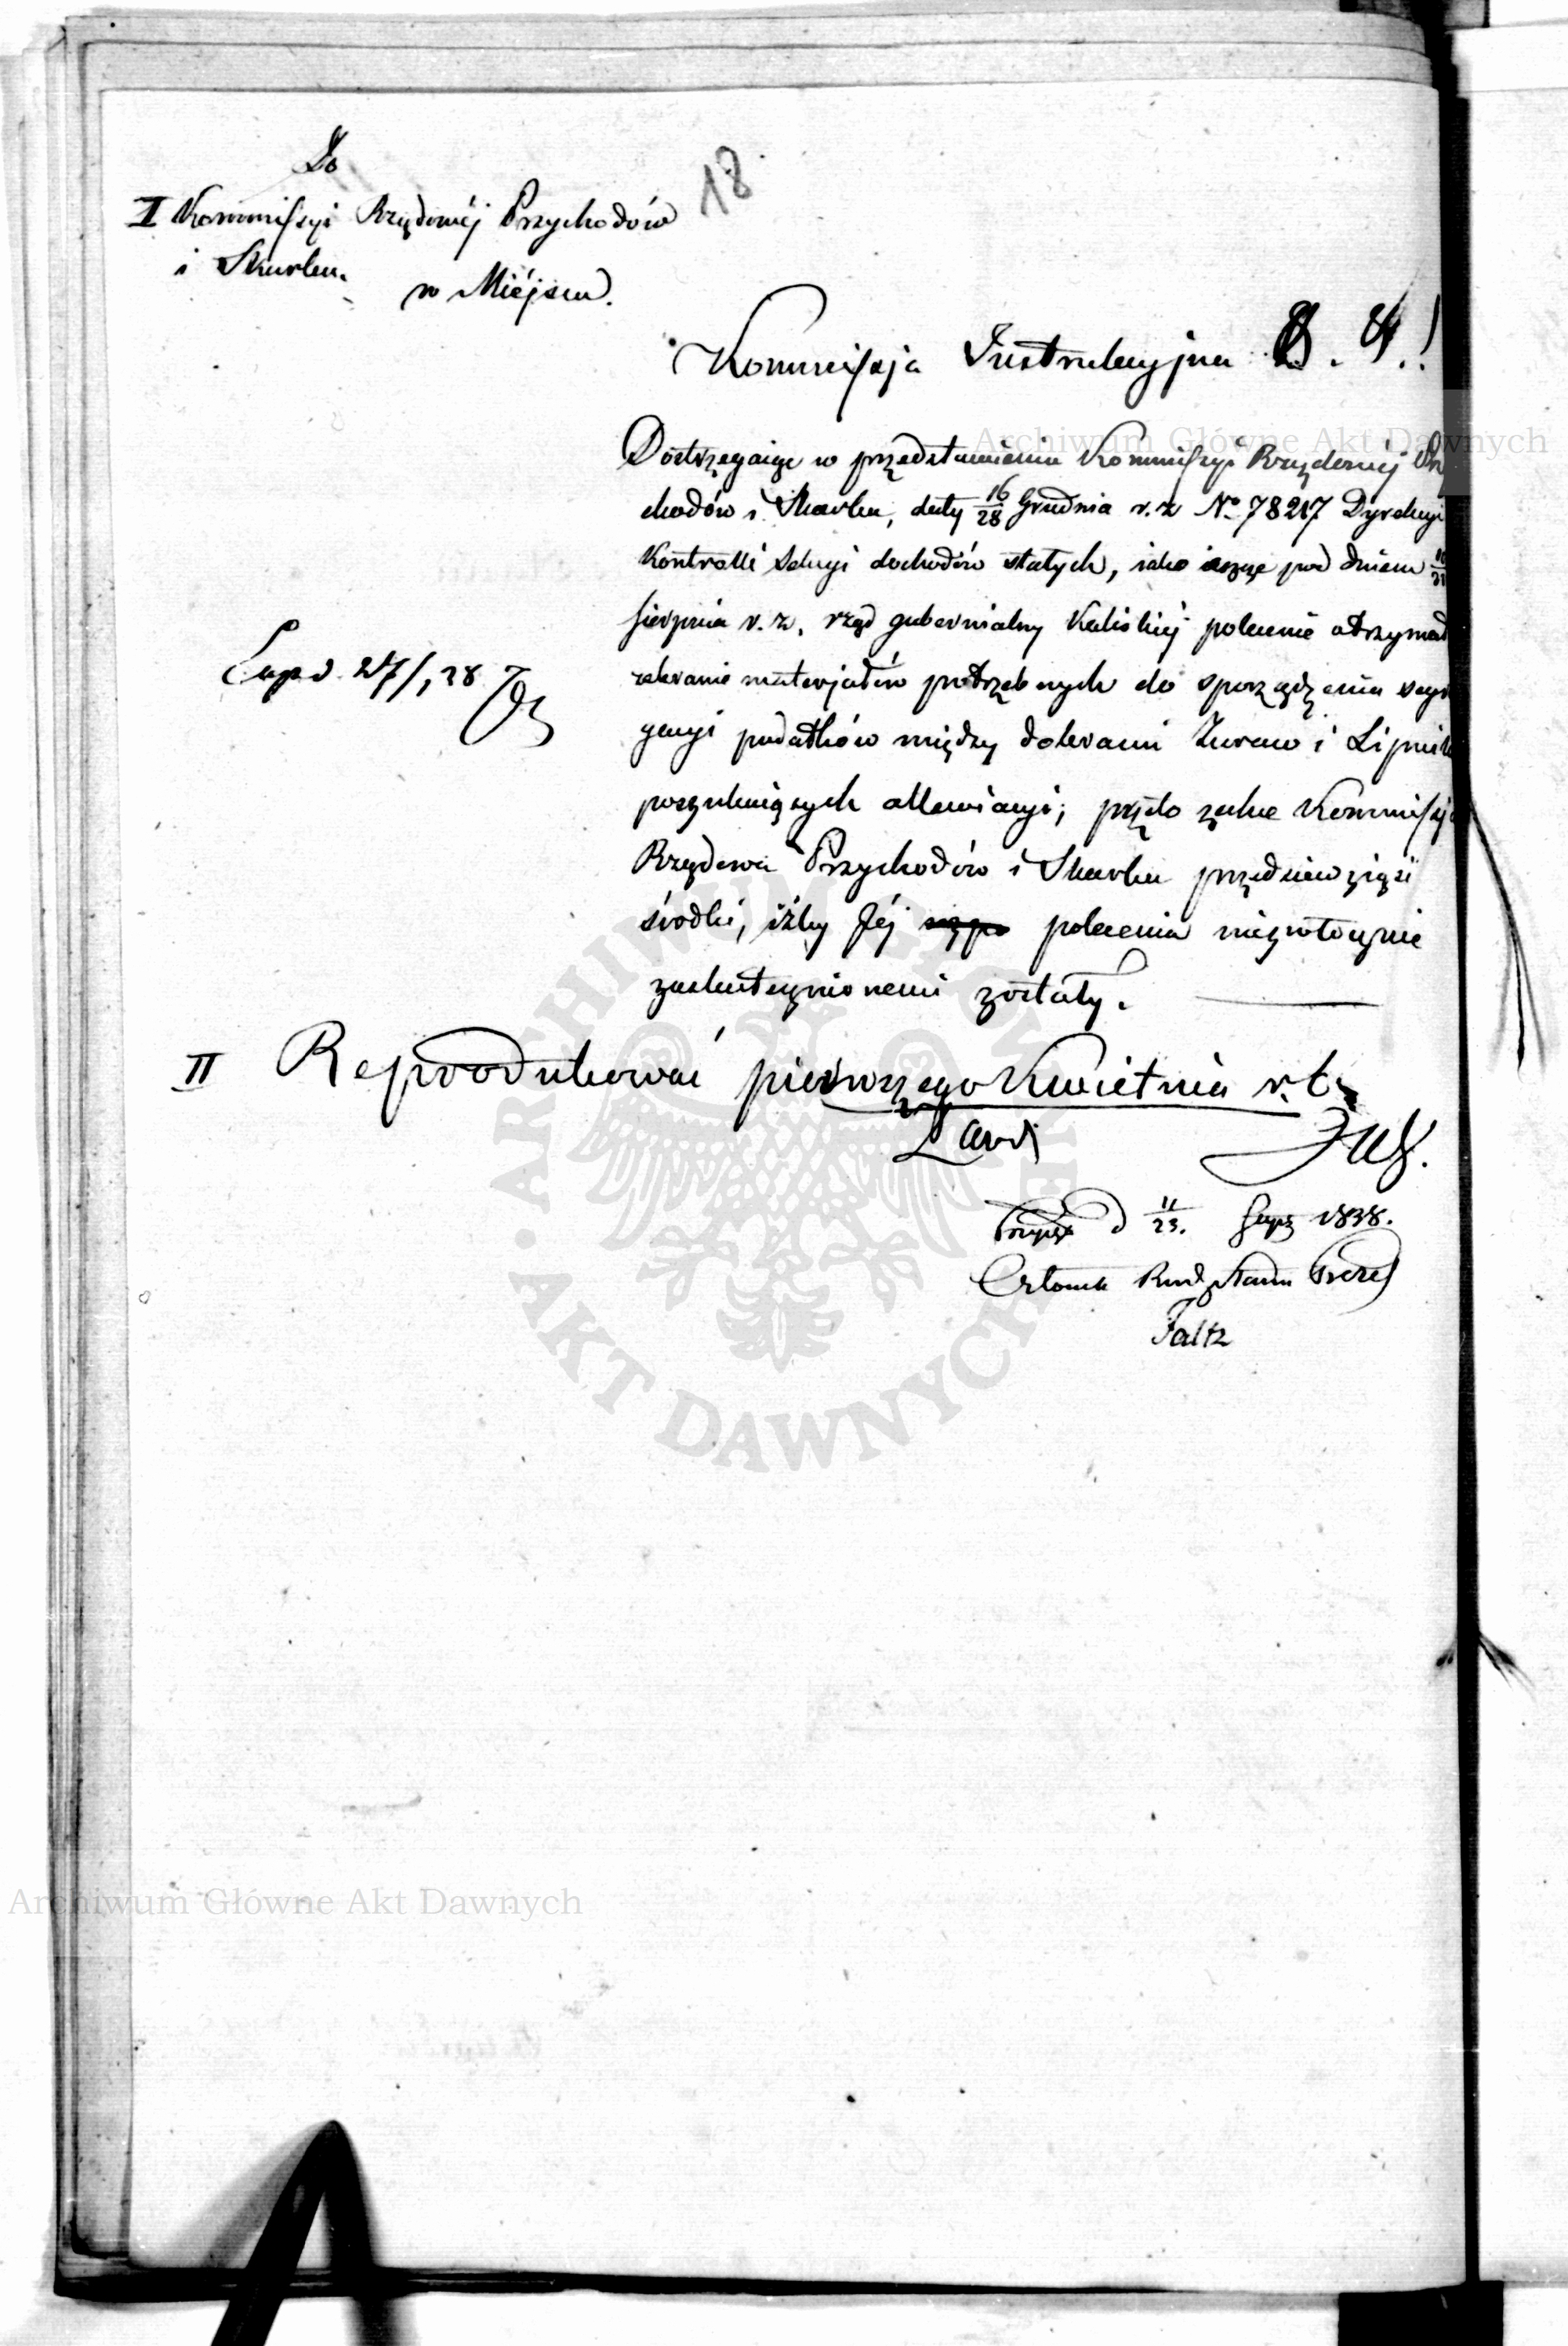 18
Do
I Kommissyi Rządowéj Przychodów
i Skarbu
w Miéjscu.
Kommissja Instrukcyjna
Dostrzegaiąc w przedstawieniu Kommissyi Rządowéj Prz
chodów i Skarbu, daty 16/28 Grudnia r. z. No 78217 Dyrekcyi
Kontrolli Sekcyi dochodów stałych, iako ieszcze pod dniem
Sierpnia r. z. rząd gubernialny Kaliskiej polecenie otrzymał
zebranie materjałów potrzebnych do sporządzenia segre
gacyi podatków między dobrami Żuraw i Lipnik
poszukuiących allewiacyi; przeto zechce Kommissja
Rządowa Przychodów i Skarbu przedsiewziąść
środki, iżby Jéj polecenia niezwłocznie
zaskutecznionemi zostały.
Exp d. 27/1 38
II Reprodukować pierwszego Kwietnia r. b.
d 11/23. 1838.
Członek Rad Stanu
Faltz
Archiwum Główne Akt Dawnych
ARCHIWUM GŁÓWNE AKT DAWNYCH
Archiwum Główne Akt Dawnych